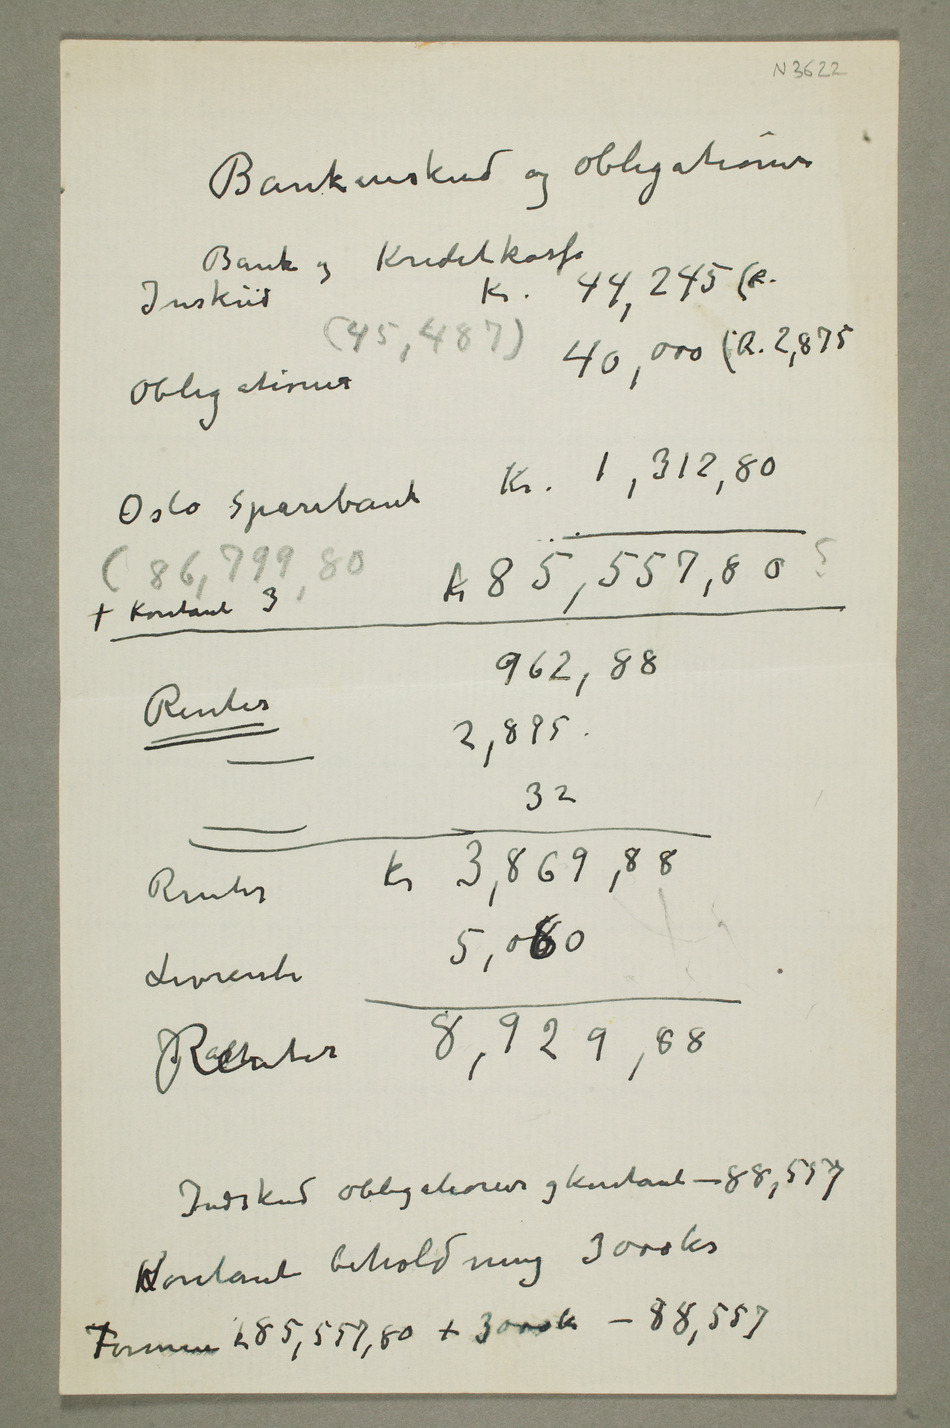 N 3622
Bankinskud og obligationer
Bank og Kreditkasse
Inskud Kr. 44,245 (R.
(45,487)
40,000 (R. 2,875
Obligationer
Oslo Sparebank Kr. 1,312,80
(86,799,80
Kr 85,557,80 5
+ Kontant 3
962,88
Renter
2,875.
32
Renter Kr 3,869,88
5,060
Livrente
Renter 8,929,88
Indskud obligationer og kontant – 88,557
Kontant beholdning 3000 kr
Formue kr 85,557,80 + 3000 k – 88,557